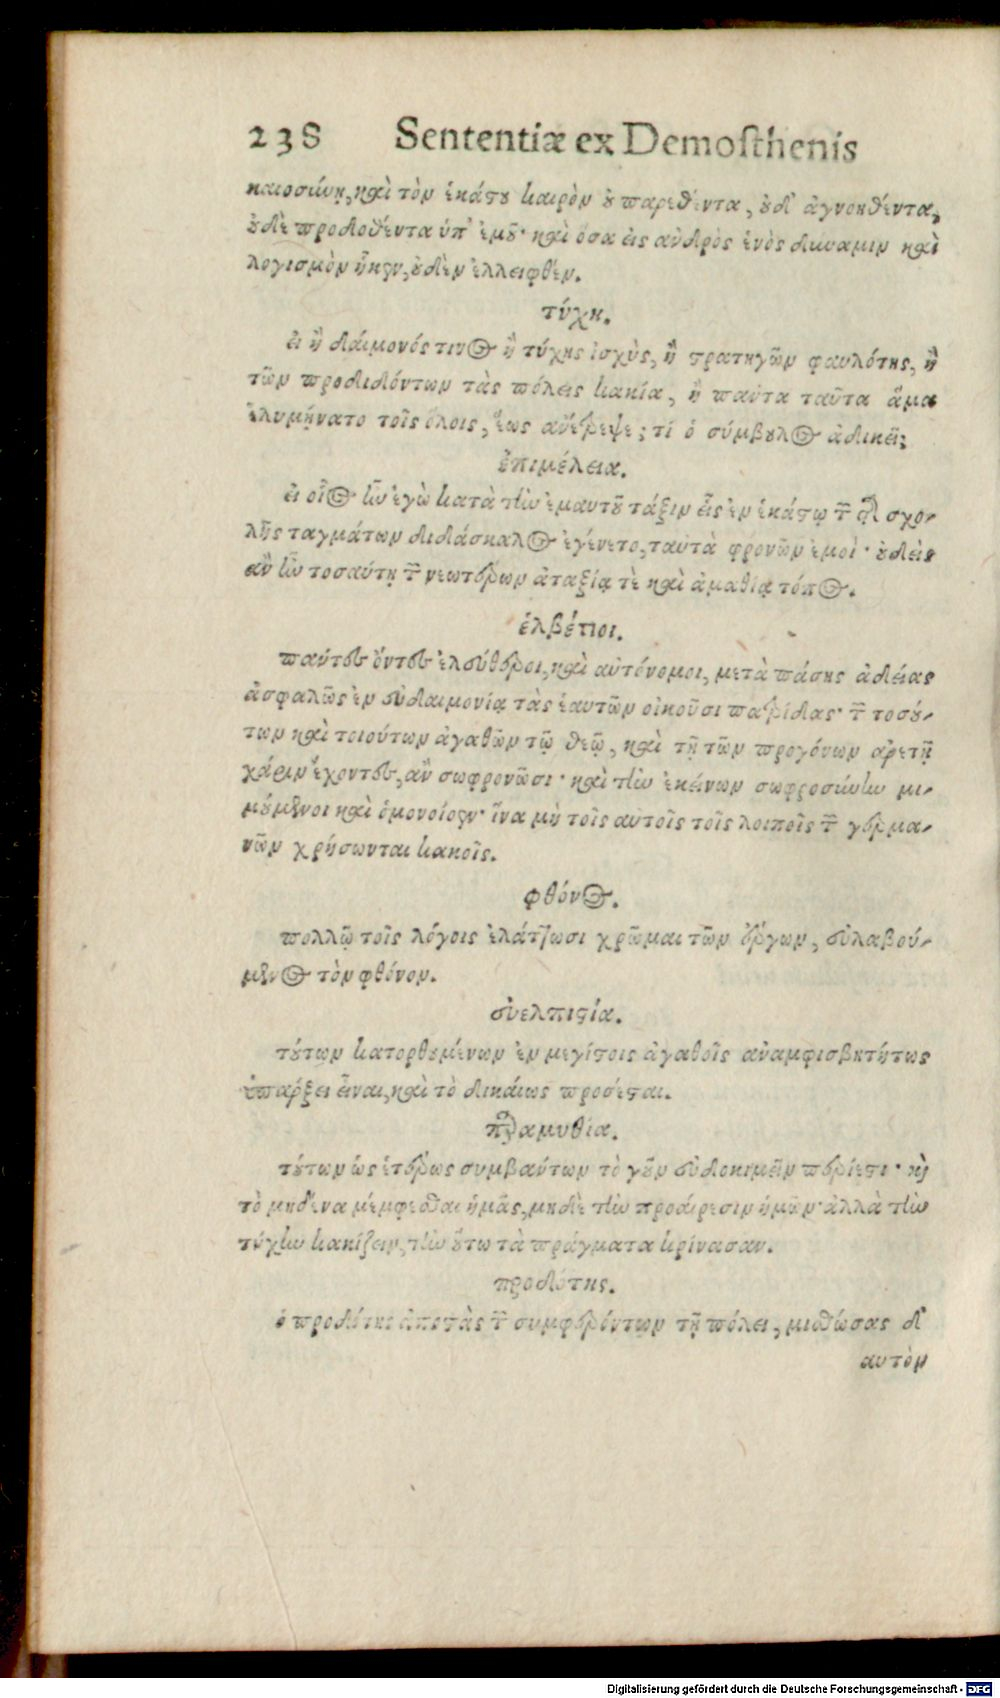 238 Sententiæ ex Demosthenis
καιοσύνῃ, καὶ τὸν ἑκάστου καιρὸν οὐ παρεθέντα, οὐδ' ἀγνοηθέντα,
οὐδὲ προδοθέντα ὑπ' ἐμοῦ· καὶ ὅσα εἰς ἀνδρὸς ἑνὸς δύναμιν καὶ
λογισμὸν ἧκεν, οὐδὲν ἐλλειφθέν.
τύχη.
εἰ ἢ δαίμονός τινος ἢ τύχης ἰσχὺς, ἢ στρατηγῶν φαυλότης, ἢ
τῶν προδιδόντων τὰς πόλεις κακία, ἢ πάντα ταῦτα ἅμα
ἐλυμήνατο τοῖς ὅλοις, ἕως ἀνέτρεψε; τί ὁ σύμβουλος ἀδικεῖ;
ἐπιμέλεια.
εἰ οἷος ἦν ἐγὼ κατὰ τὴν ἐμαυτοῦ τάξιν εἷς ἐν ἑκάστῳ τῶν τῆς σχο-
λῆς ταγμάτων διδάσκαλος ἐγένετο, ταὐτὰ φρονῶν ἐμοὶ· οὐδεὶς
ἂν ἦν τοσαύτῃ τῶν νεωτέρων ἀταξίᾳ τὲ καὶ ἀμαθίᾳ τόπος.
ἑλβέτιοι.
πάντες ὄντες ἐλεύθεροι, καὶ αὐτόνομοι, μετὰ πάσης ἀδείας
ἀσφαλῶς ἐν εὐδαιμονίᾳ τὰς ἑαυτῶν οἰκοῦσι πατρίδας· τῶν τοσού-
των καὶ τοιούτων ἀγαθῶν τῷ θεῷ, καὶ τῇ τῶν προγόνων ἀρετῇ
χάριν ἔχοντες, ἂν σωφρονῶσι· καὶ τὴν ἐκείνων σωφροσύνην μι-
μούμενοι καὶ ὁμονοίαν· ἵνα μὴ τοῖς αὐτοῖς τοῖς λοιποῖς τῶν γερμα-
νῶν χρήσωνται κακοῖς.
φθόνος.
πολλῷ τοῖς λόγοις ἐλάττωσι χρῶμαι τῶν ἔργων, εὐλαβού-
μενος τὸν φθόνον.
εὐελπιστία.
τούτων κατορθουμένων ἐν μεγίστοις ἀγαθοῖς ἀναμφισβητήτως
ὑπάρξει εἶναι, καὶ τὸ δικαίως προσέσται.
παραμυθία.
τούτων ὡς ἑτέρως συμβάντων τὸ γοῦν εὐδοκιμεῖν περίεστι· καὶ
τὸ μηδένα μέμφεσθαι ἡμᾶς, μηδὲ τὴν προαίρεσιν ἡμῶν· ἀλλὰ τὴν
τύχην κακίζειν, τὴν οὕτω τὰ πράγματα κρίνασαν.
προδότης.
ὁ προδότης ἀποστὰς τῶν συμφερόντων τῇ πόλει, μισθώσας δ'
αὑτὸν
Digitalisierung gefördert durch die Deutsche Forschungsgemeinschaft - DFG